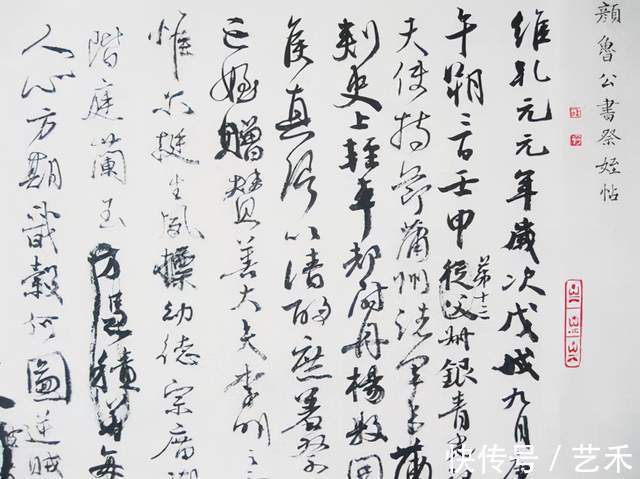 顏魯公書祭姪帖
維乾元元年歲次戊戌九月庚
午朔三日壬申從父叔銀青光
第十三
夫使持節蒲州諸軍事蒲
刺史上輕車都尉丹楊縣開
侯真卿以清酌庶羞祭
亡姪贈贊善大夫季明之
惟爾挺生夙標幼德宗廟瑚
階庭蘭玉方憑積善每
人心方期戩穀何圖逆賊
快传号 / 艺禾